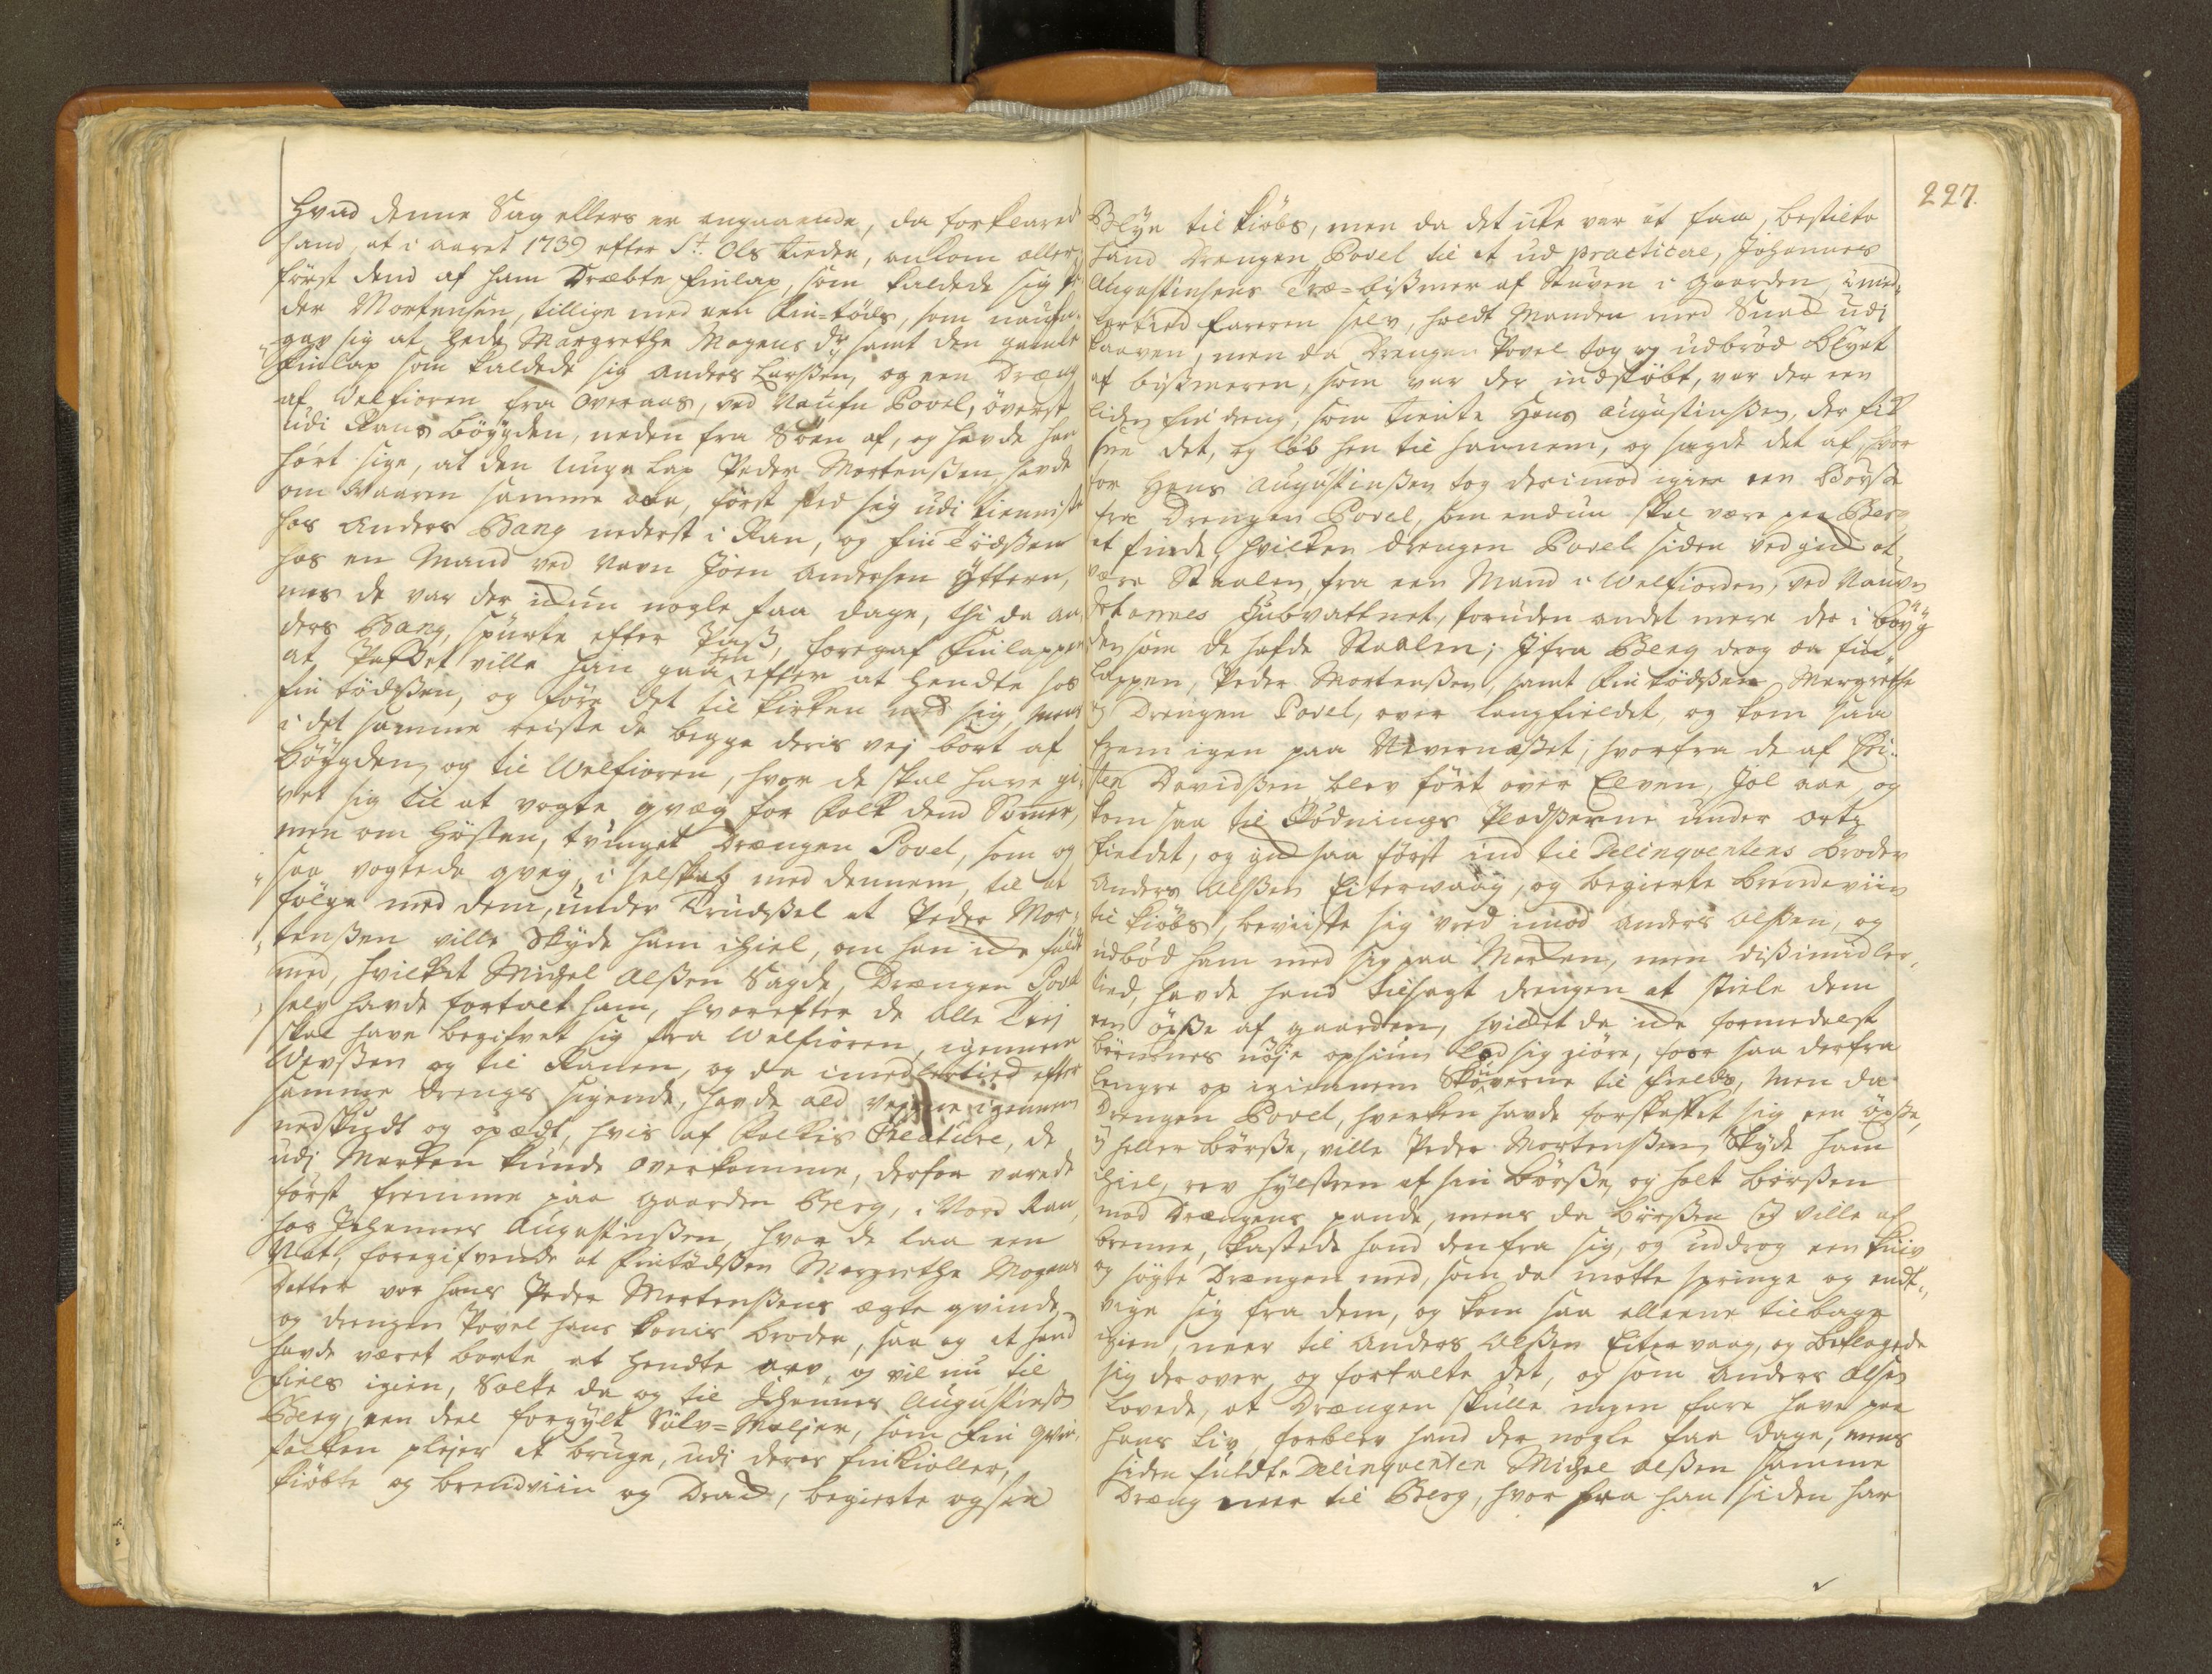 Hvad denne Sag ellers er angaaende, da forklarede
hand, at i aaret 1739 efter St. Ols tieder, ankom aller,,
først dend af ham Dræbte Finlap, som kaldede sig Pe
der Mortensen, tillige med een Fin-tøds, som naufn,,
gav sig at hede Margrethe Mogens dr. samt den gamle
Finlap som kaldede sig Anders Larssen, og een Dreng
af Velfioren fra Overaas, ved Naufn Povel, øverst
udi Rans Bøygden, neden fra Søen af, og havde han
hørt sige, at den unge Lap Peder Mortenssen havde
om Vaaren samme aar, først sted sig udi tienniste
hos Anders Bang nederst i Ran, og Fin Tødssen
hos en Mand ved Navn Joen Andersen Ytteren,
mens de var der ickun nogle faa dage, thi da An
ders Bang, spurte efter Pass, foregaf Finlappen
at Passet ville han gaa hen efter at hendte hos
Fin tødssen, og føre det til Kirken med sig, mens
i det samme reiste de begge deris vej bort af
Bøygden, og til Velfioren, hvor de skal have gi,
vet sig til at vogte qvæg for Folk dend Sommer,
men om Høsten, tvinget Drængen Povel, som og
saa vogtede qveg, i selskab med dennem, til at
følge med dem, under Trudssel at Peder Mor,,
tenssen ville Skyde ham ihiel, om han icke fuldt
med, hvilket Michel Olssen Sagde, Drængen Povel
selv havde fortalt ham, hvorefter de alle Trej
skal have begifvet sig fra Velfioren, igennem
Vevssen og til Ranen, og da imedlertied efter
samme Drengs sigende, havde ald vejene igennem
nedskudt og opædt, hvis af Folkis Creature, de
udj Marken kunde overkomme, derfor varede
først fremme paa gaarden Berg, i Nord Ran,
hos Johannes Augustinssen, hvor de laa een
Nat, foregifvende at Fintødssen Margrethe Mogens
Datter var hans Peder Mortenssens ægte qvinde,
og drengen Povel hans Konis broder, saa og at hand
havde været borte at hendte arv, og vil nu til
Fields igien, Solte da og til Johannes Augustinss
Berg, een deel forgylt Sølv-Maljer, som Fin qvin,
folken plejer at bruge, udi deres Finkioller,
kiøbte og brendviin og Drack, begierte ogsaa
227.
Blye til kiøbs, men da det icke var at faa, bestilte
hand Drengen Povel til at ud practicere, Johannes
Augustinsens Træ-bissmer af Stuven i Gaarden, imid,,
lertied Fareren selv, holdt Manden med Snack udi
kaaven, men da Drengen Povel tog og udbrød Blyet
af bissmeren, som var der indstøbt, var der een
liden fin dreng, som tiente Hans Augustinssen, der fik
see det, og løb hen til hannem, og sagde det af, hvor
for Hans Augustinssen tog derimod igien een Børsse
fra Drengen Povel, som endnu skal være paa Berg
at finde, hvilken drengen Povel siden vedgick at
være Staalen, fra een Mand i Velfiorden, ved Naufn
Johannes Hubvattnet, foruden andet mere der i bøyg
den som de hafde Staalen; Ifra Berg drog da Fin,,
Lappen, Peder Mortenssen, samt Fin tødssen Margrethe
og Drengen Povel, over langfieldet, og kom saa
frem igen paa Nevernæsset, hvorfra de af Chri,,
sten Davidssen blev ført over Elven, Jol aae, og
kom saa til Rødnings Pladsserne under Ortz
fieldet, og gick saa først ind til Delinqventens broder
Anders Olssen Eiterwaag, og begierte brendeviin
til kiøbs, beviiste sig vred imod Anders Olssen, og
udbød ham med sig paa Marcken, men dissimidler,
tied, havde hand tilsagt drengen at stiele dem
een øxse af gaarden, hvilcket da icke formedelst
børnenes nøje opsiun lod sig giøre, foor saa derfra
lengre op igiennem Skoverne til fields, Men da
Drengen Povel, hverken havde forskaffet sig een øxse,
ej heller børsse, ville Peder Mortenssen Skyde ham
ihiel, rev hylstren af sin Børsse, og holt børssen
mod Drængens pande, mens da børssen ej ville af
brenne, kastede hand den fra sig, og uddrog een kniv
og søgte Drengen med, som da motte springe og endt,,
vige sig fra dem, og kom saa alleene tilbage
igien, neer til Anders Olssen Eitervaag, og beklagede
sig der over, og fortalte det, og som Anders Olsen
lovede, at Drængen skulle ingen fare have paa
hans Liv, forblev hand der nogle faa dage, mens
siden fuldte Delinqventen Michel Olssen Samme
Dreng neer til Berg, hvor fra han siden har